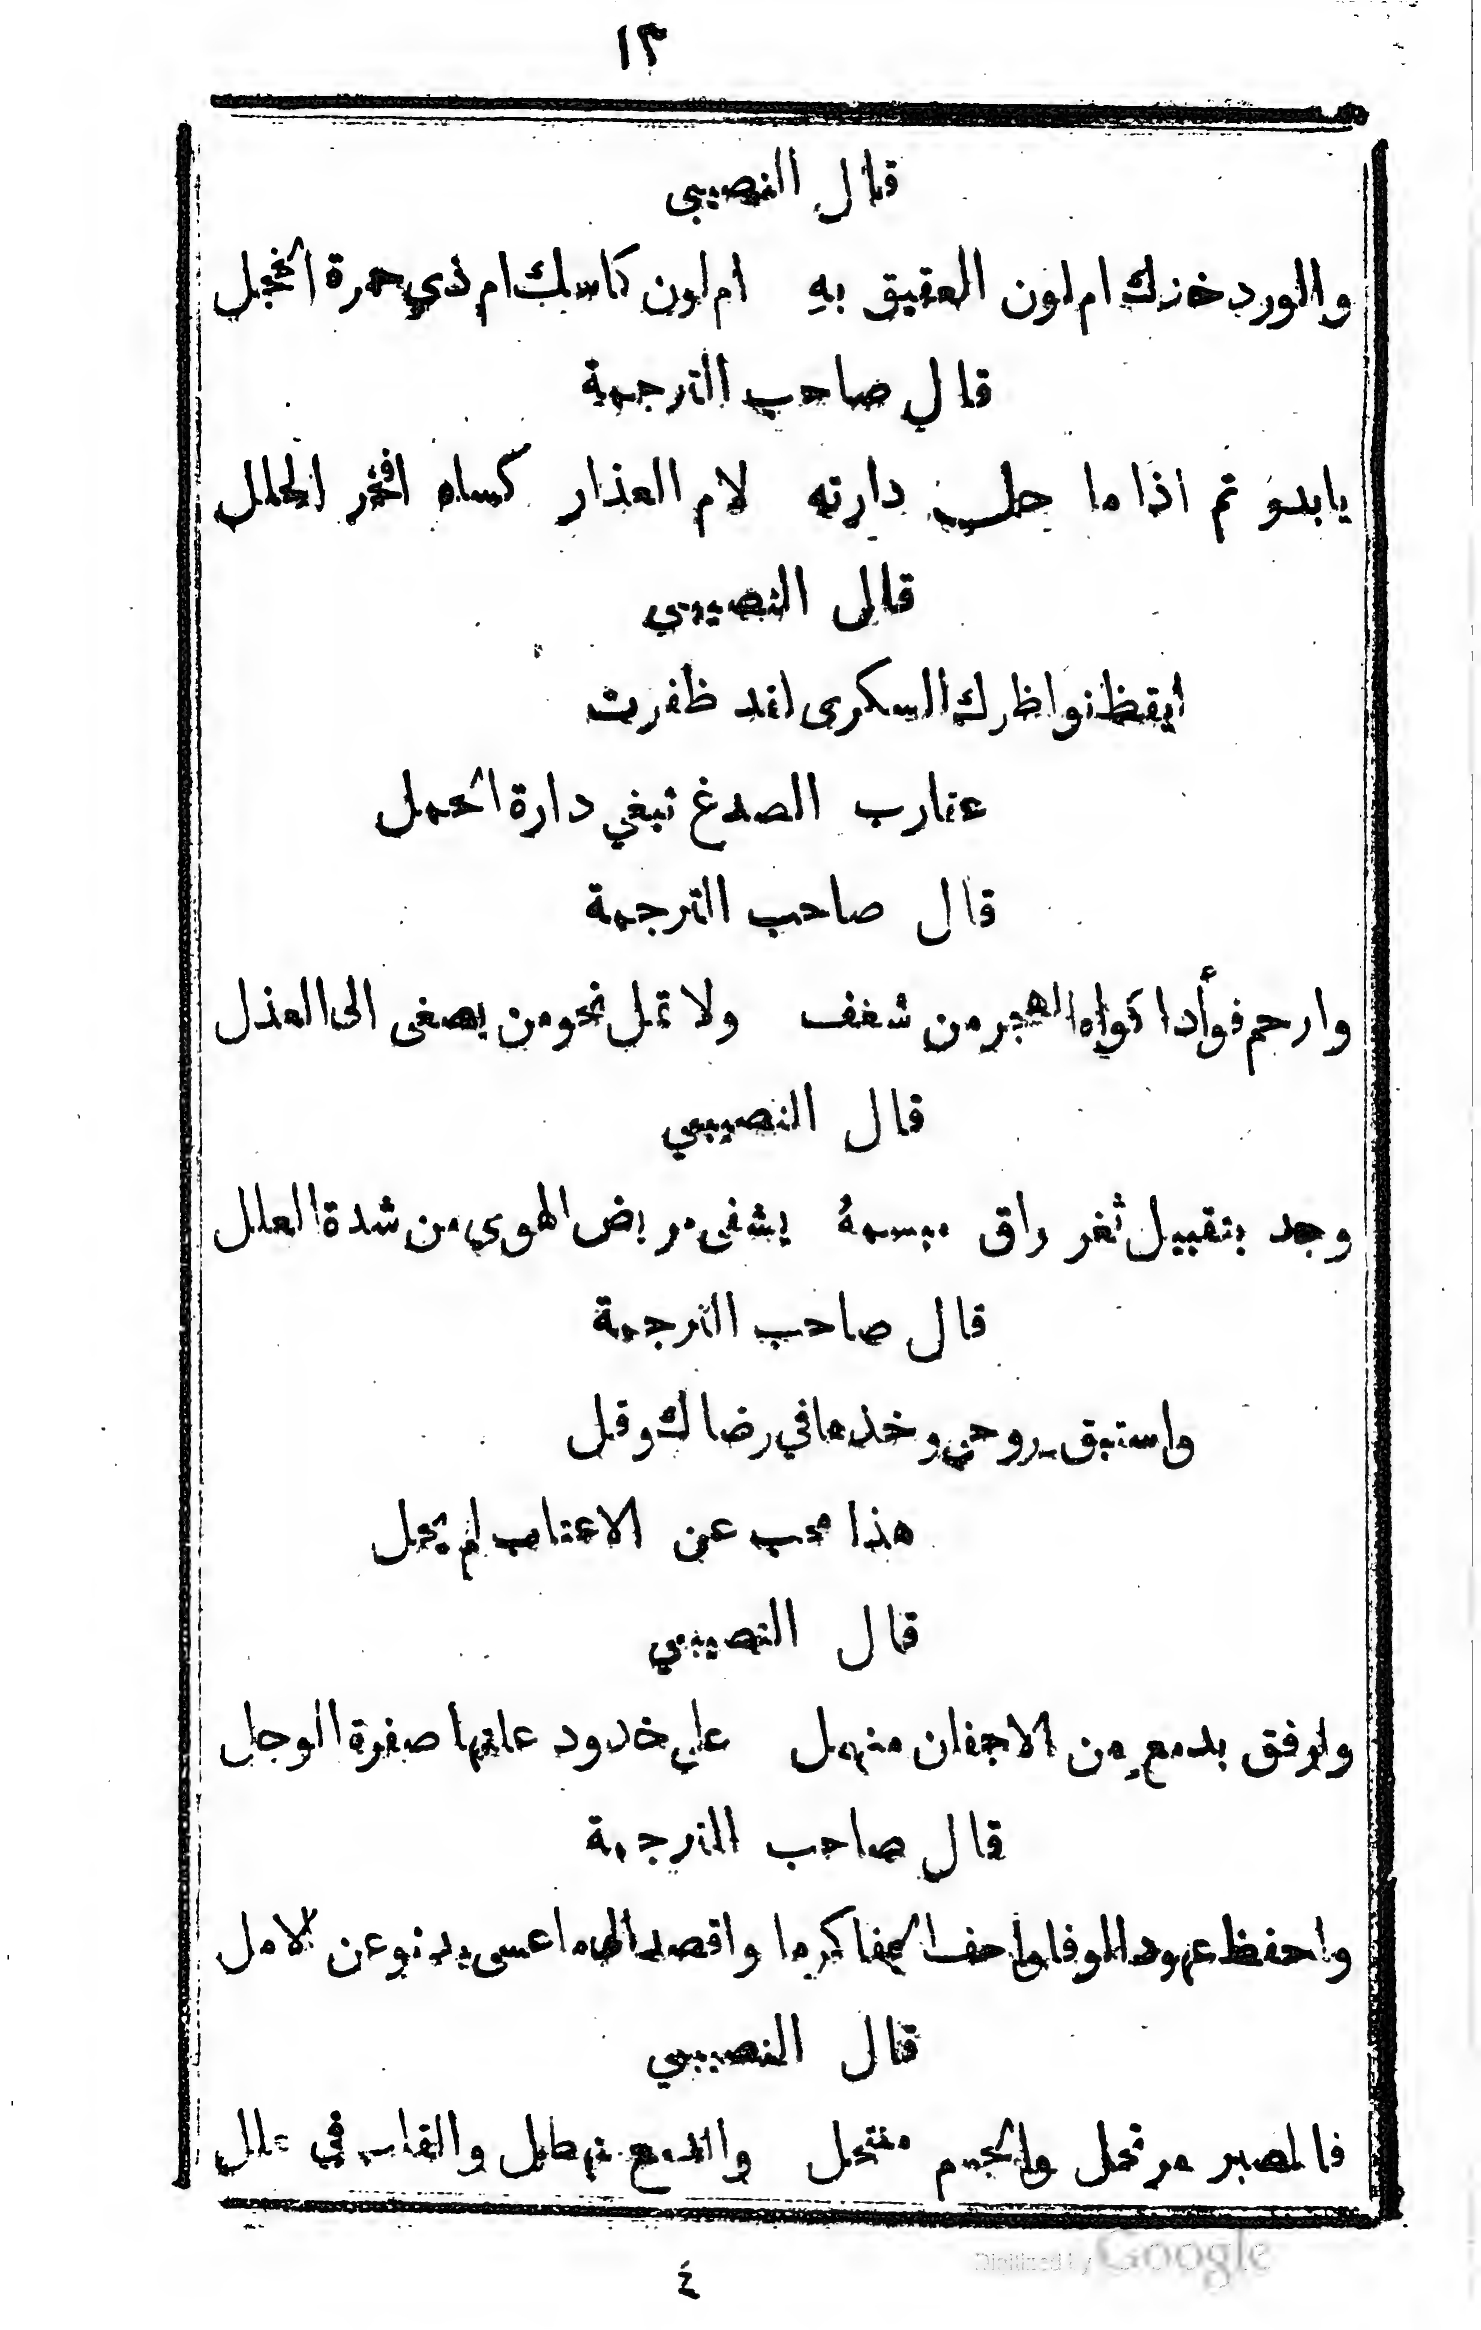 ١٣
قال النصيبي
والورد خدك ام لون العقيق به ام لون كاسك ام ذي حمرة الخجل
قال صاحب الترجمة
يابدر تم اذا ما حل دارته لام العذار كساه افخر الحلل
قال النصيبي
ايقظ نواظرك السكرى لقد ظفرت
عقارب الصدغ تبغي دارة الحمل
قال صاحب الترجمة
وارحم فوأدا كواه الهجر من شغف ولا تمل نحو من يصغى الى العذل
قال النصيبي
وجد بتقبيل ثغر راق مبسمهُ يشفى مريض الهوي من شدة العلل
قال صاحب الترجمة
واستبق روحي وخذها في رضاك وقل
هذا محب عن الاعتاب لم يحل
قال النصيبي
وارفق بدمعٍ من الاجفان منهمل علي خدود علتها صفرة الوجل
قال صاحب الترجمة
واحفظ عهود الوفا واحف الجفا كرما واقصد الهما عسى يدنو عن لامل
قال النصيبي
فالصبر مرتحل والجسم منتحل والدمع نهطل والقلب في علل
٤
Digitized by Google